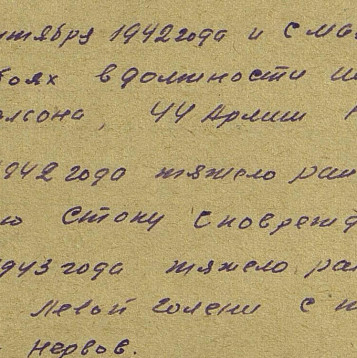 нтября 1942 года и с мая
боях в должности
алсона, 44 Армии
1942 года тяжело ран
ю стопу с поврежд
1943 года тяжело ран
левой голени с п
нервов.